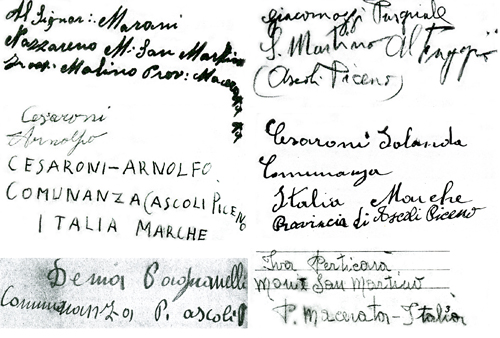 Al Signor: Marani
Nazzareno M: San Martino
Molino Prov: Macerata
Cesaroni
Arnolfo
CESARONI-ARNOLFO
COMUNANZA (ASCOLI PICENO
ITALIA MARCHE
Denia Pagnanelli
Comunanza P. ascoli P
Giacomozzi Pasquale
S. Martino Al Faggio
(Ascoli Piceno)
Cesaroni Iolanda
Comunanza
Italia Marche
Provincia di Ascoli Piceno
Iva Perticarà
Monte San Martino
P. Macerata-Italia